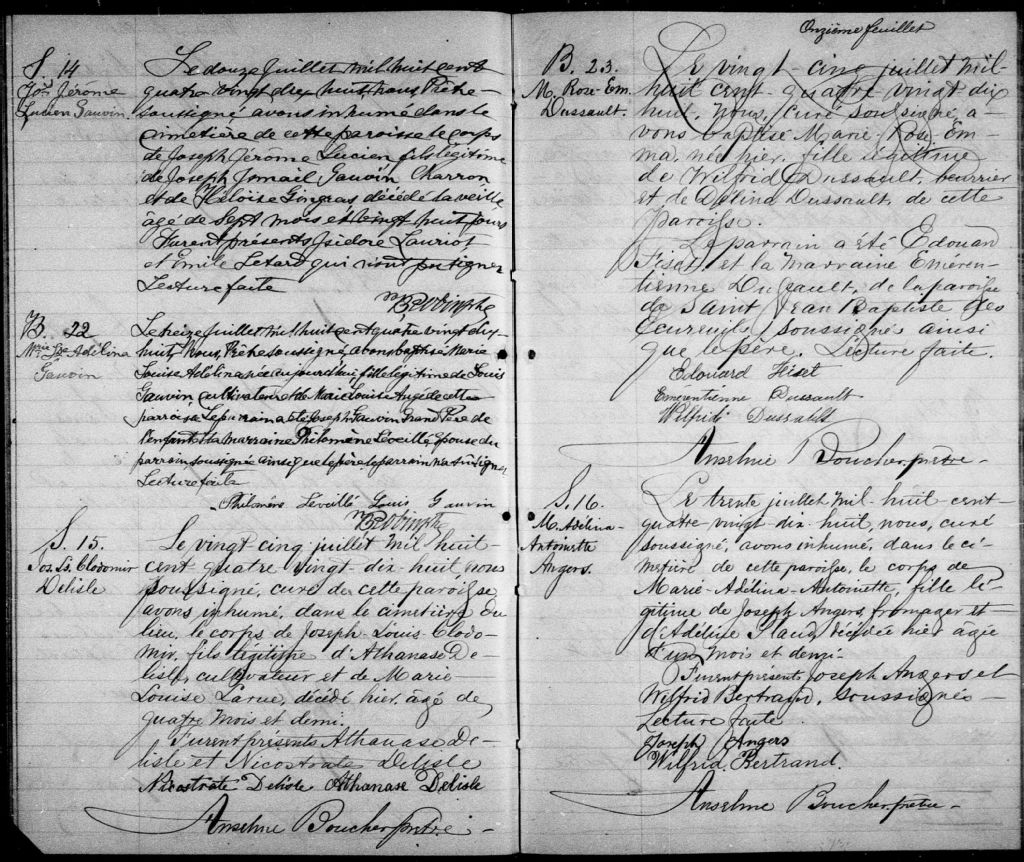 S. 14
Jos. Jérôme
Lucien Gauvin
Le douze Juillet mil huit cent
quatre vingt dix huit, Nous Prêtre
soussigné avons inhumé dans le
cimetière de cette paroisse le corps
de Joseph Jérôme Lucien fils légitime
de Joseph Ismaël Gauvin Charron
et de Héloïse Gingras décédé la veille
âgé de Sept mois et vingt huit jours
Furent présents Isidore Lauriot
et Emile Letard qui n'ont pu signer
Lecture faite
B. 22
Mie Lse Adélina
Gauvin
Le seize Juillet mil huit cent quatre vingt dix
huit, Nous, Prêtre soussigné, avons baptisé Marie
Louise Adelina née aujourd'hui, fille légitime de Louis
Gauvin cultivateur et de Marie Louise Augé de cette
paroisse. Le parrain a été Joseph Gauvin Grand Père de
l'enfant et la marraine Philomène Léveillé épouse du
parrain soussignée ainsi que le père le parrain n'a su signer
Lecture faite
Philomène Léveillé Louis Gauvin
S. 15.
Jos. Ls. Clodomir
Delisle
Le vingt cinq juillet mil huit-
cent quatre vingt-dix-huit nous
soussigné, curé de cette paroisse
avons inhumé, dans le cimetière du
lieu, le corps de Joseph-Louis-Clodo-
mir, fils légitime d'Athanase De-
lisle, cultivateur et de Marie-
Louise Larue, décédé hier, âgé de
quatre mois et demi.
Furent présents Athanase De-
lisle et Nicostrate Delisle
Nicostrate Delisle Athanase Delisle
Anselme Boucher ptre -
Onzième feuillet
B. 23.
M. Rose-Em.
Dussault.
Le vingt-cinq juillet mil-
huit cent-quatre vingt dix
huit, Nous, Curé soussigné, a-
vons baptisé Marie-Rose Em-
ma, née hier, fille légitime
de Wilfrid Dussault, beurrier
et de Délina Dussault, de cette
paroisse.
Le parrain a été Edouard
Fiset et la marraine Eméren-
tienne Dussault, de la paroisse
de Saint Jean Baptiste des
Ecureuils, soussignés ainsi
que le père. Lecture faite.
Edouard Fiset
Emerentienne Dussault
Wilfrid Dussault
Anselme Boucher ptre -
S. 16.
M. Adélina-
Antoinette
Angers.
Le trente juillet mil-huit cent
quatre vingt dix-huit, nous, curé
soussigné, avons inhumé, dans le ci-
metière de cette paroisse, le corps de
Marie-Adélina-Antoinette, fille lé-
gitime de Joseph Angers, fromager et
d'Adéline décédée hier âgée
d'un mois et demi-
Furent présents Joseph Angers et
Wilfrid Bertrand, soussignés
Lecture faite
Joseph Angers
Wilfrid Bertrand.
Anselme Boucher ptre -